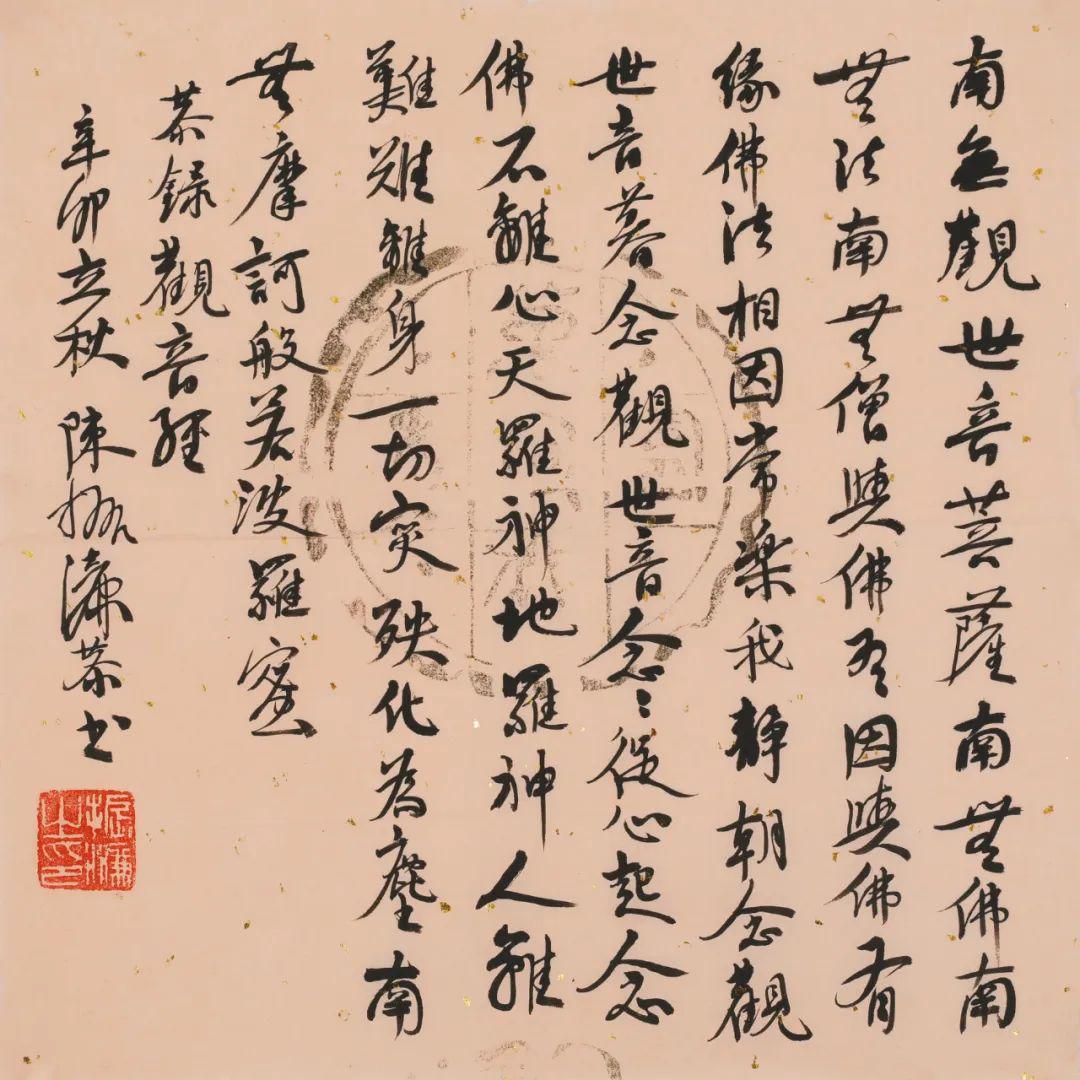 南無觀世音菩薩南無佛南
無法南無僧與佛有因與佛有
緣佛法相因常樂我靜朝念觀
世音暮念觀世音念〻從心起念
佛不離心天羅神地羅神人離
難難離身一切災殃化為塵南
無摩訶般若波羅蜜
恭錄觀音經
辛卯立秋 陳振濂恭书
振濂之印